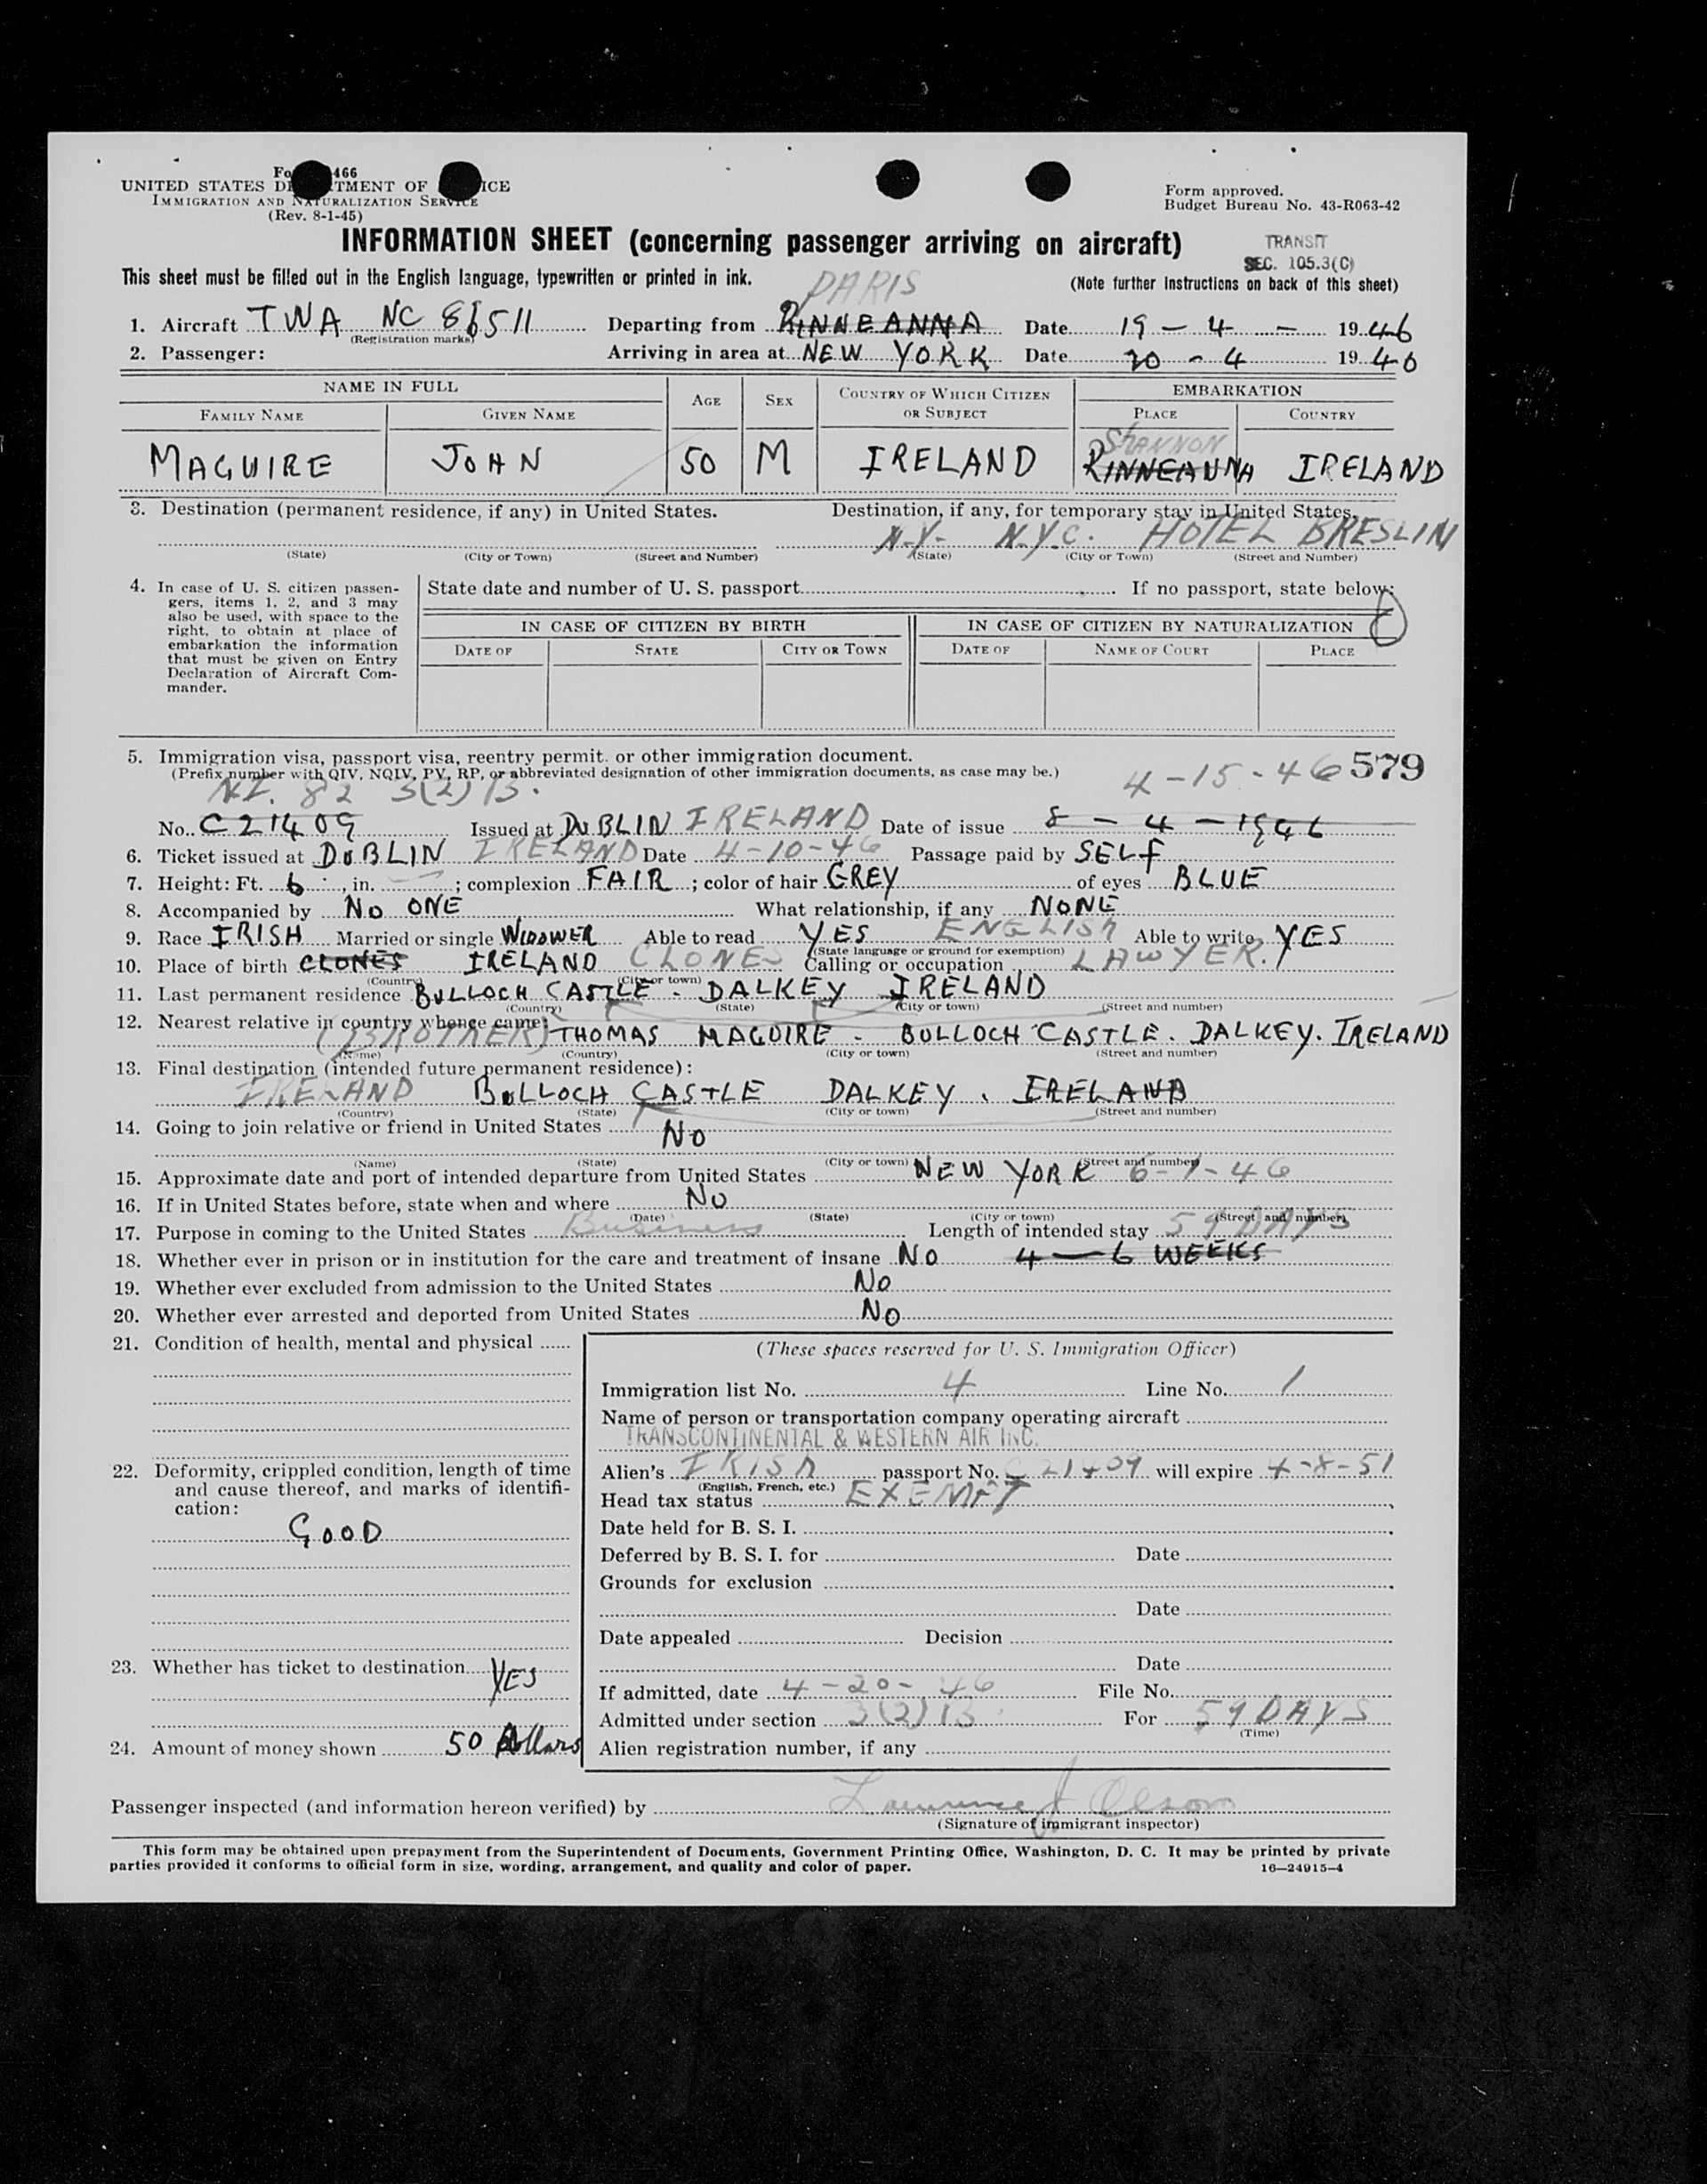 Fo 466
UNITED STATES DE TMENT OF ICE
IMMIGRATION AND NATURALIZATION SERVICE
(Rev. 8-1-45)
Form approved.
Budget Bureau No. 43-R063-42
INFORMATION SHEET (concerning passenger arriving on aircraft)
TRANSIT
SEC. 105.3(C)
This sheet must be filled out in the English language, typewritten or printed in ink.
(Note further instructions on back of this sheet)
PARIS
1. Aircraft TWA NC 86511 Departing from RINNEANNA Date 19 - 4 - 1946
(Registration marks)
2. Passenger: Arriving in area at NEW YORK Date 20 - 4 1946
NAME IN FULL AGE SEX COUNTRY OF WHICH CITIZEN OR SUBJECT EMBARKATION
FAMILY NAME GIVEN NAME PLACE COUNTRY
SHANNON
MAGUIRE JOHN 50 M IRELAND RINNEANNA IRELAND
3. Destination (permanent residence, if any) in United States. Destination, if any, for temporary stay in United States.
N.Y. N.Y.C. HOTEL BRESLIN
(State) (City or Town) (Street and Number) (State) (City or Town) (Street and Number)
4. In case of U. S. citizen passengers, items 1, 2, and 3 may also be used, with space to the right, to obtain at place of embarkation the information that must be given on Entry Declaration of Aircraft Commander.
State date and number of U. S. passport If no passport, state below:
IN CASE OF CITIZEN BY BIRTH IN CASE OF CITIZEN BY NATURALIZATION
DATE OF STATE CITY OR TOWN DATE OF NAME OF COURT PLACE
5. Immigration visa, passport visa, reentry permit. or other immigration document.
(Prefix number with QIV, NQIV, PV, RP, or abbreviated designation of other immigration documents, as case may be.)
4-15-46 579
82 3(2)B.
No. C21409 Issued at DUBLIN IRELAND Date of issue 8 - 4 - 1946
6. Ticket issued at DUBLIN IRELAND Date 4-10-46 Passage paid by SELF
7. Height: Ft. 6 , in. ; complexion FAIR ; color of hair GREY of eyes BLUE
8. Accompanied by NO ONE What relationship, if any NONE
9. Race IRISH Married or single WIDOWER Able to read YES ENGLISH Able to write YES
(State language or ground for exemption)
10. Place of birth CLONES IRELAND CLONES Calling or occupation LAWYER.
(Country) (City or town)
11. Last permanent residence BULLOCH CASTLE - DALKEY IRELAND
(Country) (State) (City or town) (Street and number)
12. Nearest relative in country whence came:
(BROTHER) THOMAS MAGUIRE - BULLOCH CASTLE. DALKEY. IRELAND
(Name) (Country) (City or town) (Street and number)
13. Final destination (intended future permanent residence):
IRELAND BULLOCH CASTLE DALKEY . IRELAND
(Country) (State) (City or town) (Street and number)
14. Going to join relative or friend in United States NO
(Name) (State) (City or town) (Street and number)
15. Approximate date and port of intended departure from United States NEW YORK 6-1-46
16. If in United States before, state when and where NO
(Date) (State) (City or town) (Street and number)
17. Purpose in coming to the United States Business Length of intended stay 59 DAYS
18. Whether ever in prison or in institution for the care and treatment of insane NO 4 — 6 WEEKS
19. Whether ever excluded from admission to the United States NO
20. Whether ever arrested and deported from United States NO
21. Condition of health, mental and physical
22. Deformity, crippled condition, length of time and cause thereof, and marks of identification:
GOOD
23. Whether has ticket to destination YES
24. Amount of money shown 50 Dollars
(These spaces reserved for U. S. Immigration Officer)
Immigration list No. 4 Line No. 1
Name of person or transportation company operating aircraft
TRANSCONTINENTAL & WESTERN AIR INC.
Alien's IRISH passport No. C21409 will expire 4-8-51
(English, French, etc.)
Head tax status EXEMPT
Date held for B. S. I.
Deferred by B. S. I. for Date
Grounds for exclusion
Date
Date appealed Decision
Date
If admitted, date 4-20-46 File No.
Admitted under section 3(2)B For 59 DAYS
(Time)
Alien registration number, if any
Passenger inspected (and information hereon verified) by Lawrence J Olson
(Signature of immigrant inspector)
This form may be obtained upon prepayment from the Superintendent of Documents, Government Printing Office, Washington, D. C. It may be printed by private
parties provided it conforms to official form in size, wording, arrangement, and quality and color of paper. 16—24915-4